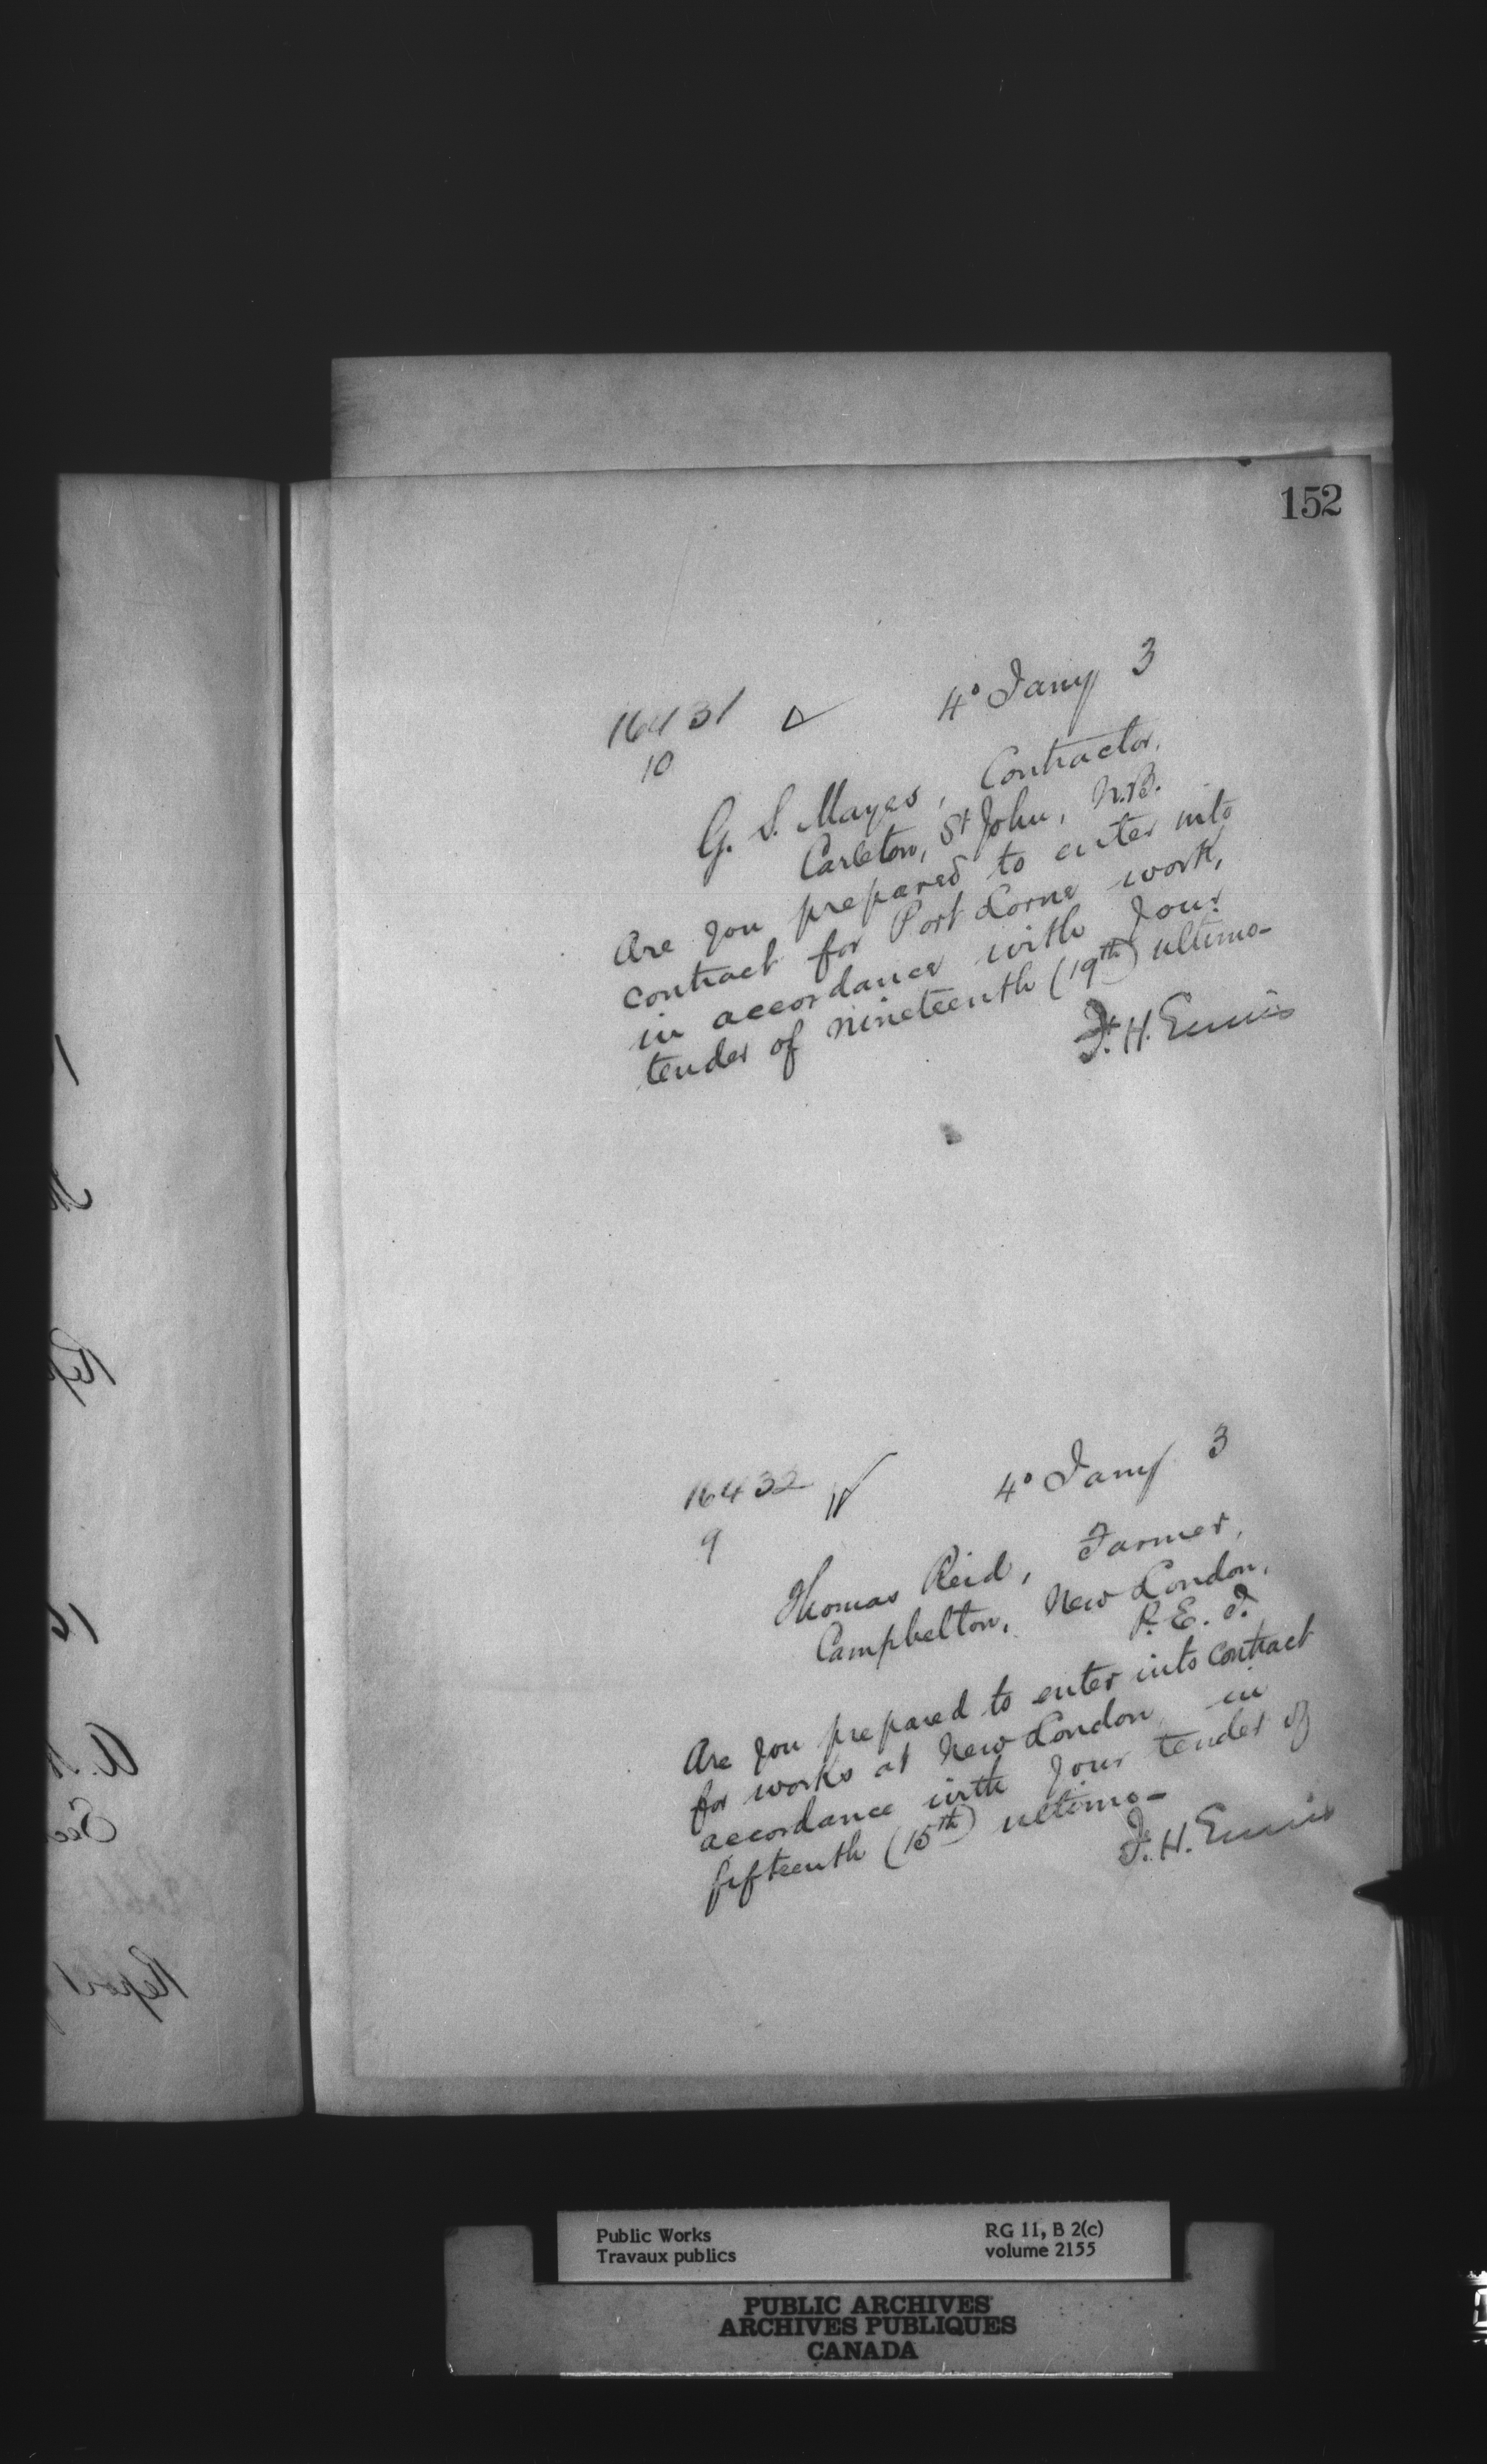 152
16431
10
4° Jany 3
G. S. Mayes, Contractor,
Carleton, St John, N.B.
Are you prepared to enter into
contract for Port Lorne work,
in accordance with your
tender of nineteenth (19th) ultimo—
F. H. Ennis
16432
9
4° Jany 3
Thomas Reid, Farmer,
Campbelton, New London,
P. E. I.
Are you prepared to enter into contract
for works at New London, in
accordance with your tender of
fifteenth (15th) ultimo—
F. H. Ennis
Public Works
Travaux publics
RG 11, B 2(c)
volume 2155
PUBLIC ARCHIVES
ARCHIVES PUBLIQUES
CANADA